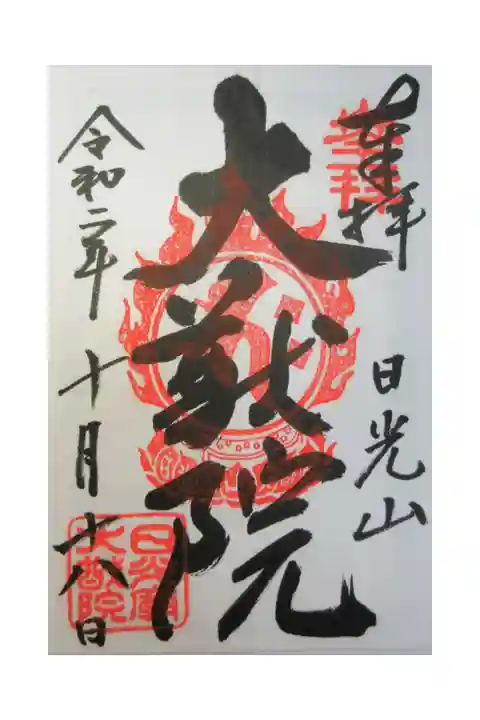 奉拝
日光山
大猷院
令和二年 十月十八日
日光山
大猷院